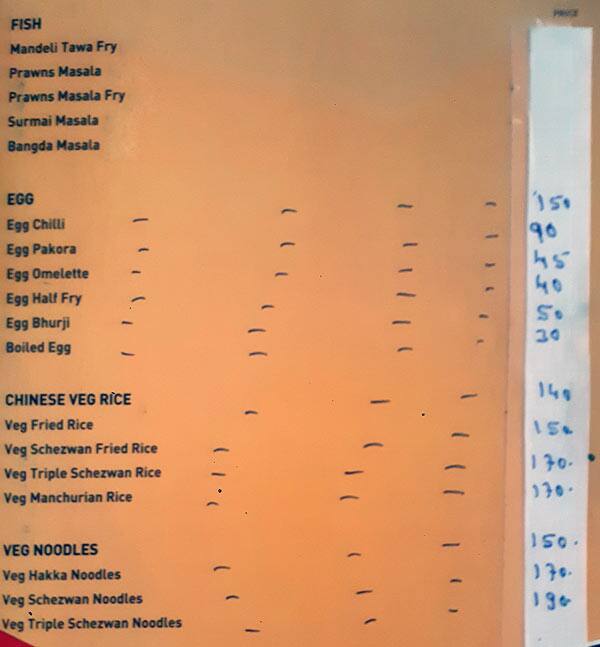 PRICE
FISH
Mandeli Tawa Fry
Prawns Masala
Prawns Masala Fry
Surmai Masala
Bangda Masala
EGG
Egg Chilli 150
Egg Pakora 90
Egg Omelette 45
Egg Half Fry 40
Egg Bhurji 50
Boiled Egg 30
CHINESE VEG RICE
Veg Fried Rice 140
Veg Schezwan Fried Rice 150
Veg Triple Schezwan Rice 170.
Veg Manchurian Rice 170.
VEG NOODLES
Veg Hakka Noodles 150.
Veg Schezwan Noodles 170.
Veg Triple Schezwan Noodles 190